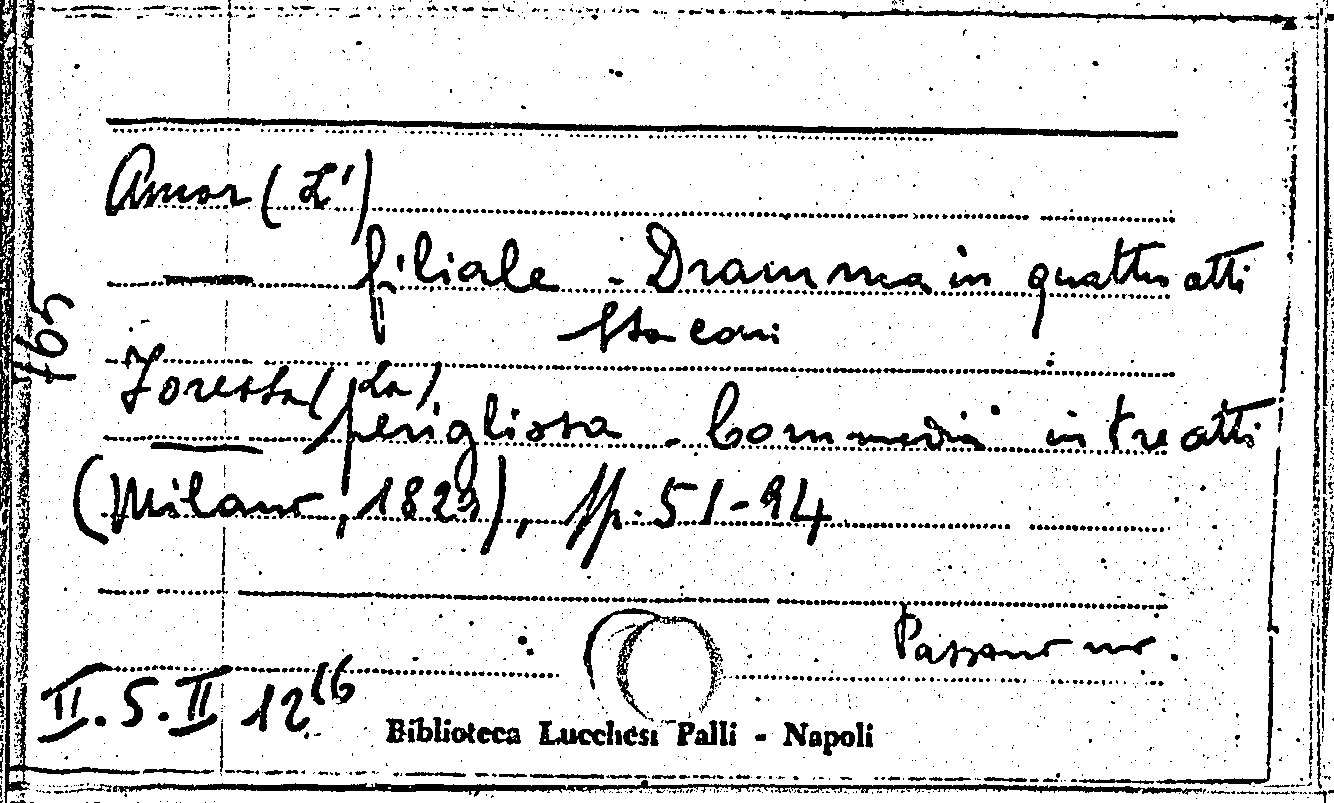 Amor (L')
— filiale - Dramma in quattro atti
Staconi
Foresta (La)
— perigliosa - Commedia in tre atti
(Milano, 1829), pp. 51-94
II. S. II 12 16
Biblioteca Lucchesi Palli - Napoli